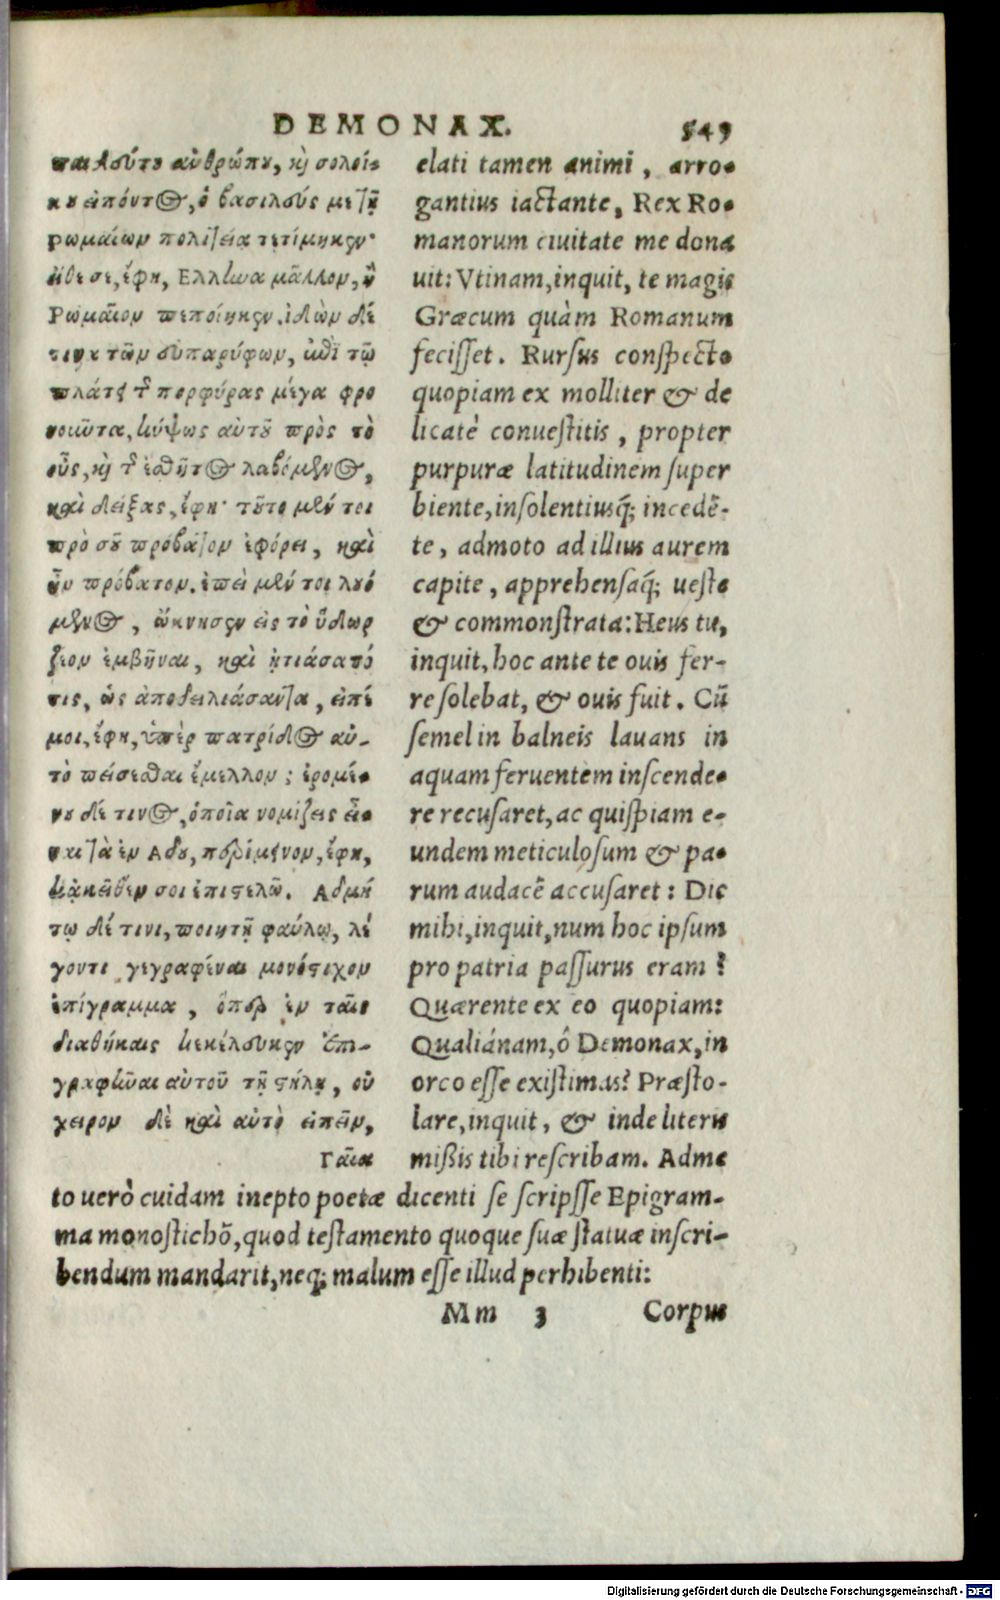 DEMONAX. 549
παιδεύτου ἀνθρώπου, κὶ σολοίκου
κου εἰπόντος, ὁ βασιλεύς με τῇ
Ρωμαίων πολιτείᾳ τετίμηκεν·
εἴθε σε, ἔφη, Ελληνα μᾶλλον, ἢ
Ρωμαῖον πεποίηκεν. ἰδὼν δέ
τινα τῶν εὐπαρύφων, ἐπὶ τῷ
πλάτει τῆς πορφύρας μέγα φρο
νοιῶτα, κύψας αὐτοῦ πρὸς τὸ
οὖς, κὶ τῆς ἐσθῆτος λαβόμενος,
καὶ δείξας, ἔφη· τοῦτο μέν τοι
πρὸ σοῦ πρόβατον ἐφόρει, καὶ
ἦν πρόβατον. ἐπεὶ μέν τοι λουό
μενος, ὤκνησεν εἰς τὸ ὕδωρ
ζέον ἐμβῆναι, καὶ ᾐτιάσατό
τις, ὡς ἀποδειλιάσαντα, εἰπέ
μοι, ἔφη, ὑπὲρ πατρίδος αὐ-
τὸ πείσεσθαι ἔμελλον; ἐρομέ-
νου δέ τινος, ὁποῖα νομίζεις εἶ-
ναι τὰ ἐν Αδου, περίμεινον, ἔφη,
κἀκεῖθεν σοι ἐπιστελῶ. Αδμή
τῳ δέ τινι, ποιητῇ φαύλῳ, λέ
γοντι γεγραφέναι μονόστιχον
ἐπίγραμμα, ὅπερ ἐν ταῖς
διαθήκαις κεκέλευκεν ἐπι-
γραφῆναι αὐτοῦ τῇ στήλῃ, οὐ
χειρον δὲ καὶ αὐτὸ εἰπεῖν,
Γαῖα
elati tamen animi, arro-
gantius iactante, Rex Ro-
manorum ciuitate me dona
uit: Vtinam, inquit, te magis
Græcum quàm Romanum
fecisset. Rursus conspecto
quopiam ex molliter & de
licatè conuestitis, propter
purpuræ latitudinem super
biente, insolentiusq́; incedē-
te, admoto ad illius aurem
capite, apprehensaq́; ueste
& commonstrata: Heus tu,
inquit, hoc ante te ouis fer-
re solebat, & ouis fuit. Cū
semel in balneis lauans in
aquam feruentem inscende-
re recusaret, ac quispiam e-
undem meticulosum & pa-
rum audacē accusaret: Dic
mihi, inquit, num hoc ipsum
pro patria passurus eram?
Quærente ex eo quopiam:
Qualiánam, ô Demonax, in
orco esse existimas? Præsto-
lare, inquit, & inde literis
mißis tibi rescribam. Adme
to uerò cuidam inepto poetæ dicenti se scripsse Epigram-
ma monostichō, quod testamento quoque suæ statuæ inscri-
bendum mandarit, neq; malum esse illud perhibenti:
Mm 3 Corpus
Digitalisierung gefördert durch die Deutsche Forschungsgemeinschaft - DFG